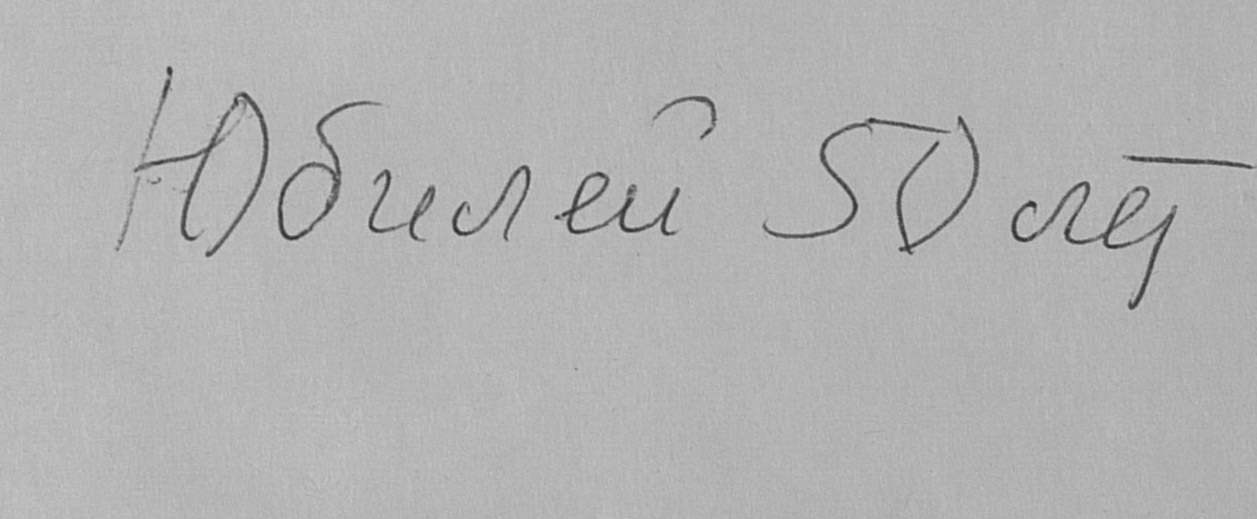 Юбилей 50 лет